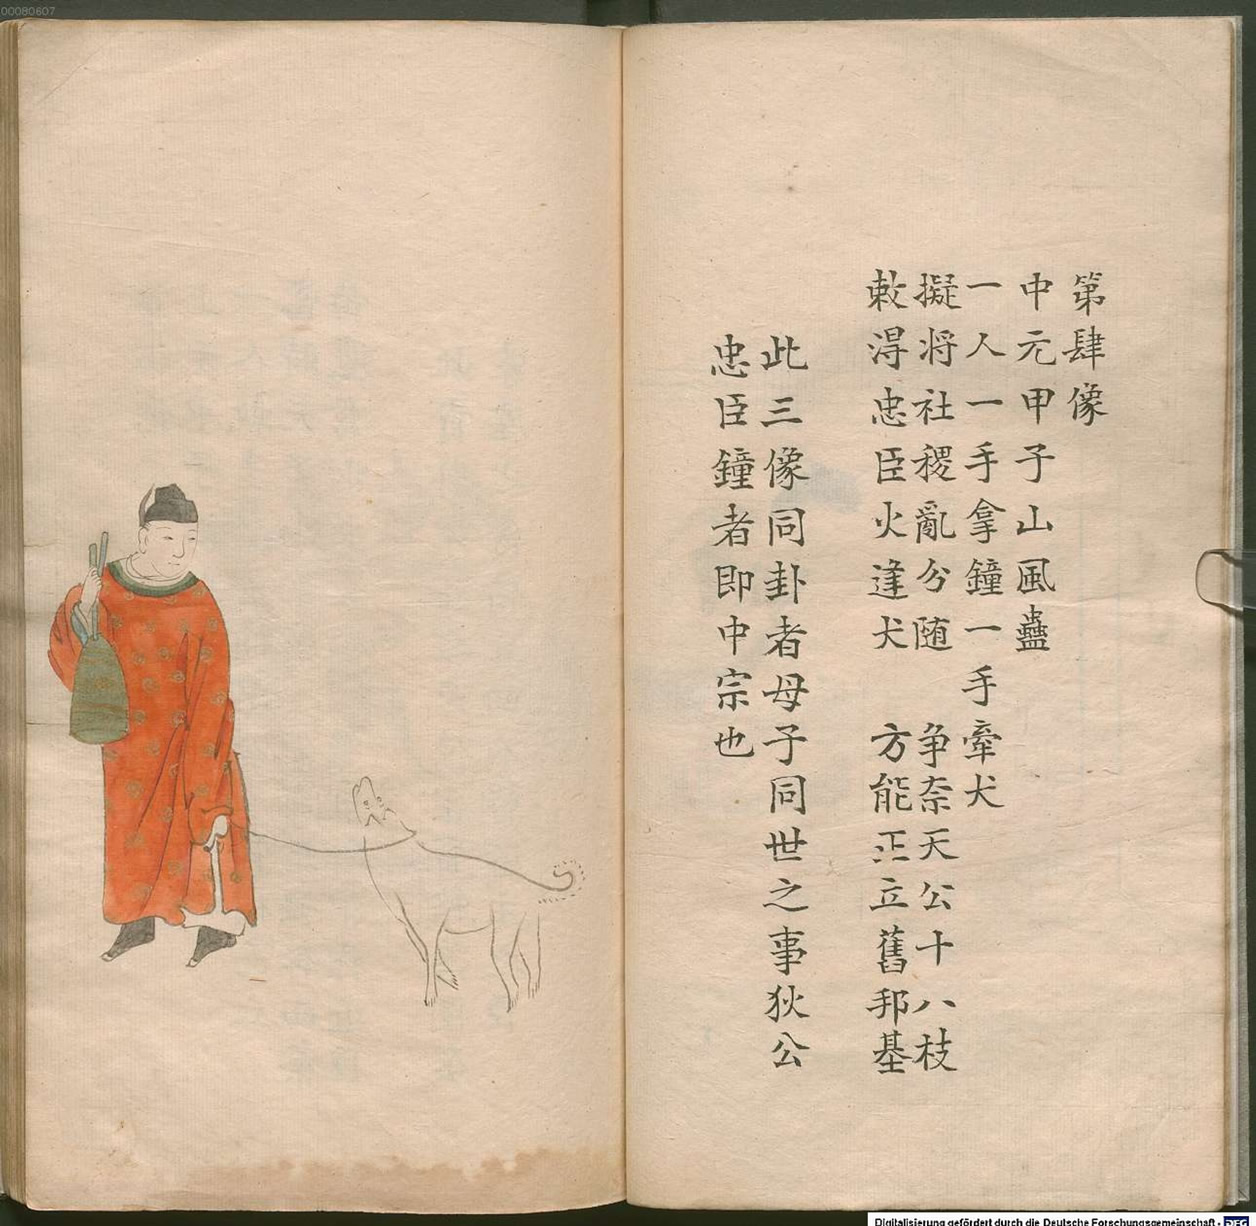 第肆像
中元甲子山風蠱
一人一手拿鐘一手牽犬
擬將社稷亂分随　争奈天公十八枝
敕淂忠臣火逢犬　方能正立舊邦基
此三像同卦者母子同世之事狄公
忠臣鐘者即中宗也
00080607
Digitalisierung gefördert durch die Deutsche Forschungsgemeinschaft - DFG